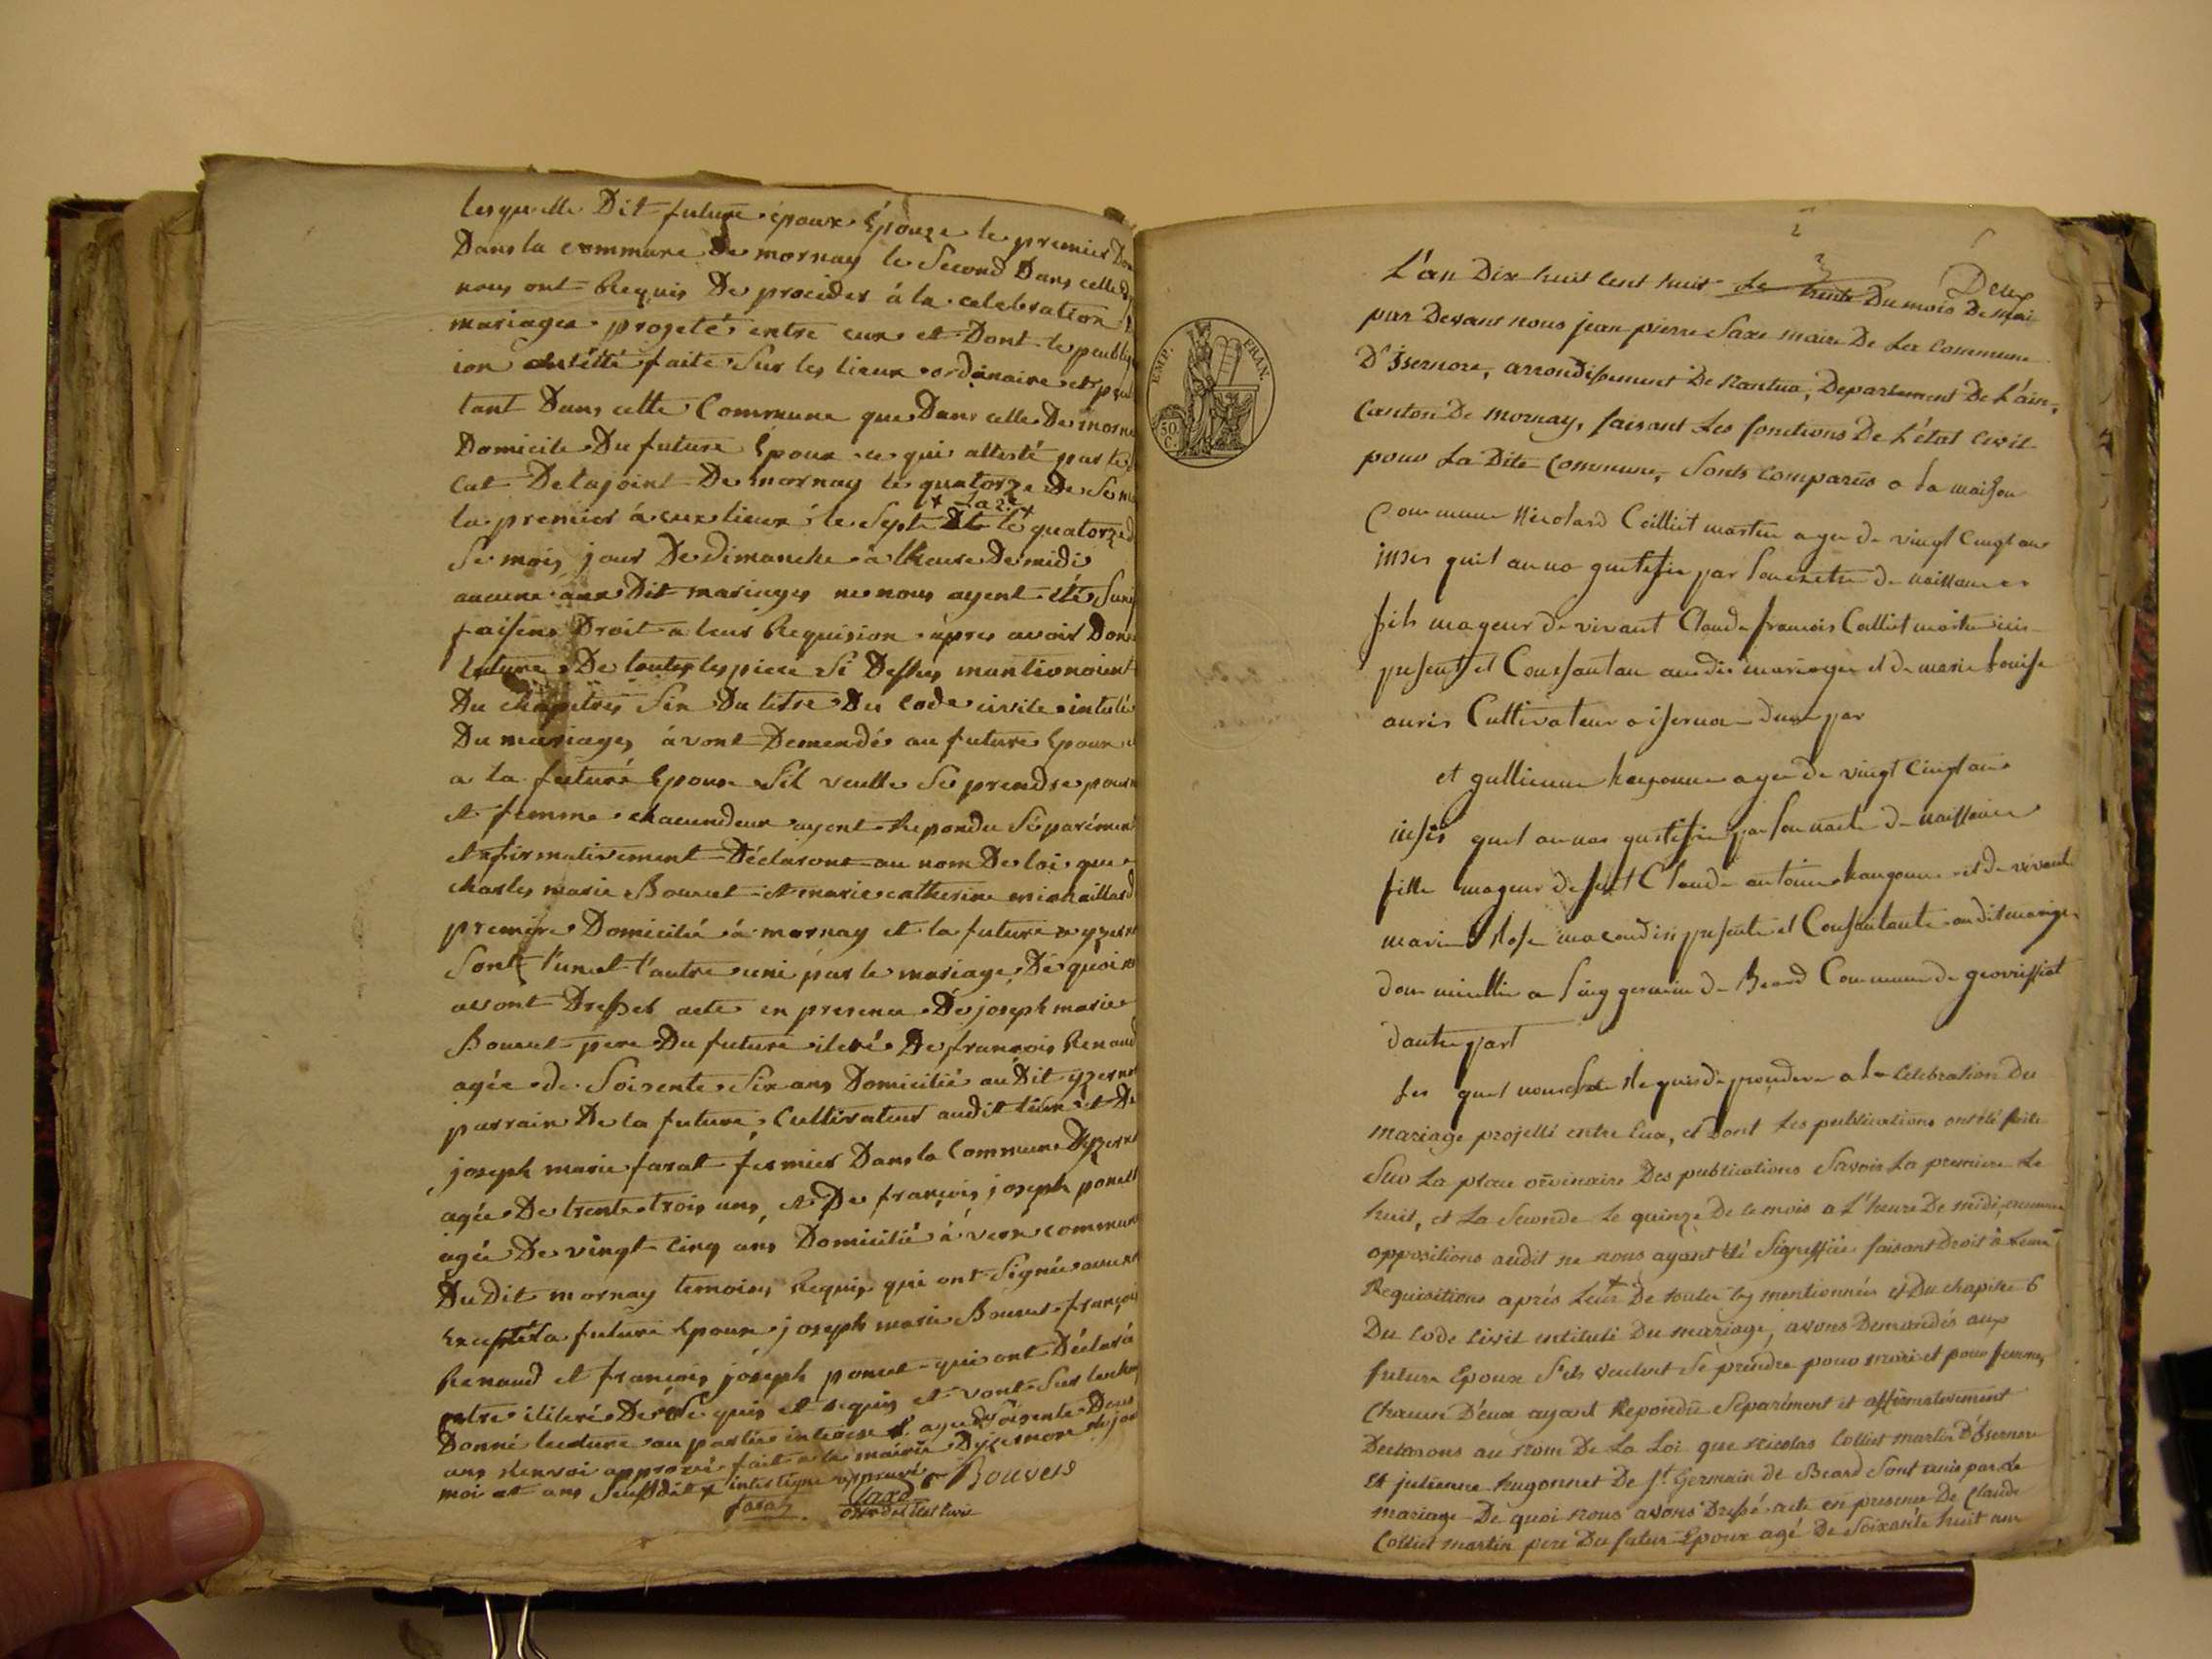 lesquelle Dit future époux Épouze le premier Dom
Dans la commune De mornay le Second Dans celle d
nous ont Requis De proceder á la celebration
mariages progeté entre eux et Dont le publiq
ion été faite Sur les lieux ordinaire et
tant Dans cette Commune que Dans celle De morna
Domicile Du future Epoux ce qui attesté par le
cat Delajoint De mornay le quatorze De Se m
la premier á eux lieux le Sept et le quatorze d
Se mois jour De dimanche á lheure De midi
aucune aux Dit mariages ne nous ayent été
faisens Droit a leur Requision apres avoir Donn
lecture De toutes les piece Si Dessus mantionoient
Du chapitres Six Du titre Du Code civile intulé
Du mariages ávont Demendé au future Epoux e
a la future Epoux Sil veulle Se prendre pour m
et femme chacundeux ayent Repondu Séparément
et afirmativement Déclarons au nom De loi que
charles marie Bouvet et marie catherine
premire Domicilié á mornay et la future yzern
Sont l'un et l'autre uni par le mariage, De quoi n
avont Dressez acte en presence De joseph marie
Bouvet pere Du future De françois Renaud
agée de Soisente Six ans Domicilié au Dit yzerno
parrain De la future, Cultivateur audit lieu et De
joseph marie farat fermier Dans la Commune Dyzerno
agée De trente trois ans, et De françois joseph poncet
agée De vingt cinq ans Domicilié á commune
Du Dit mornay temoins Requis qui ont Signé avec n
Excepté la future Epoux joseph marie Bouvet françois
Renaud et françois joseph poncet qui ont Déclaré
De Se quis et requis et
Donné lecture au partie agé de Soisente Deux
ans Renvoi approuvé fait a la mairie Dyzernore
moi et ans Susdit interligne approuvé
Bouvet
farat Saxe
2
L'an Dix huit Cent huit le trente Du mois De Mai
3 Deux
par Devant nous jean pierre Saxe maire De La Commune
D'Isernore, arrondissement De Nantua, Departement De L'ain,
Canton De Mornay, faisant Les fonctions De L'état Civil
pour La Dite Commune, Sonts Comparûs a la maison
Commune Nicolard Colliet martin age de vingt Cinqt ans
quil au no gustifie par Son de naissances
fils mageur de vivant Claude francois Colliet martin
present et Consantan audit mariages et de marie Louise
auris Cultivateur a isernor dune par
et gullienne hugonne ager de vingt Cinqt ans
quel au nos gustifie par Son nacte de naissance
fille mageur de Claude antoine hugonne et de vivante
marie Rose presente et Consantante audit mariges
dommicillie a Sing germin de Beard Commune de geovrissiat
dautre part
Les quel nous Requis de procedere a la Celebration Du
mariage projetté entre Eux, et Dont Les publications ont été faite
Sur La place ordinaire Des publications Savoir La premiere Le
huit, et La Seconde Le quinze De Ce mois a L'heure De midi, aucunne
oppositions audit ne nous ayant été Signiffiée faisant Droit à Leur
Requisitions aprés De toutes mentionnées et Du chapitre 6
Du Code Civil intitulé Du mariage, avons Demandés aux
future Epoux S'ils veulent Se prendre pour mari et pour femme,
Chacun D'eux ayant Repondûe Séparément et affirmativement
Declarons au nom De La Loi que Nicolas Colliet martin D'Isernore
Et julienne hugonnet De St Germain de Beard Sont unis par Le
mariage De quoi nous avons Dressé acte en presence De Claude
Colliet martin pere Du futur Epoux agé De Soixante huit ans
EMP. FRAN.
50 C.